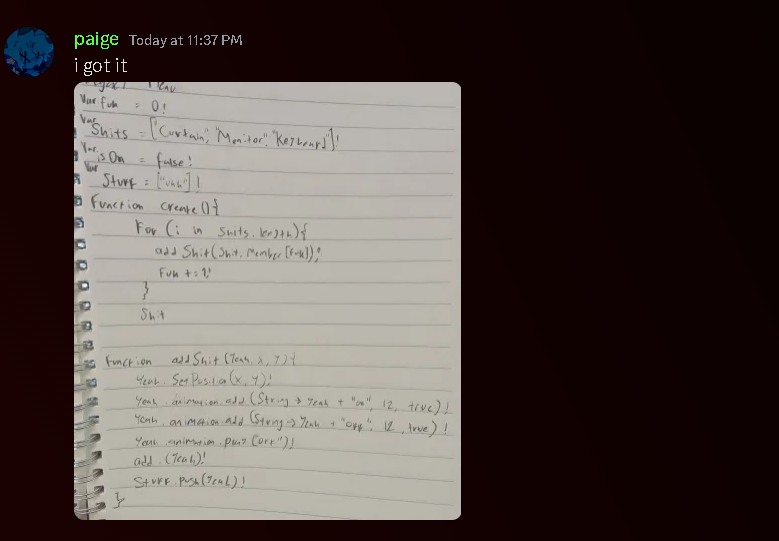 paige Today at 11:37 PM
i got it
Var fuk = 0!
Var Shits = ["Curtain", "Monitor", "Keyboard"]!
Var isOn = false!
Var Stuff = ["uhh"]!
function create(){
For (i in Shits.length){
add Shit(Shit.member[fuk])!
Fuk += 1!
}
Shit
Function addShit (Yeah, x, y){
Yeah. SetPosition(x, y)!
Yeah. animation.add (String → Yeah + "on", 12, true)!
Yeah. animation.add (String → Yeah + "off", 12, true)!
Yeah. animation.play ("off")!
add. (Yeah)!
Stuff.push(Yeah)!
}